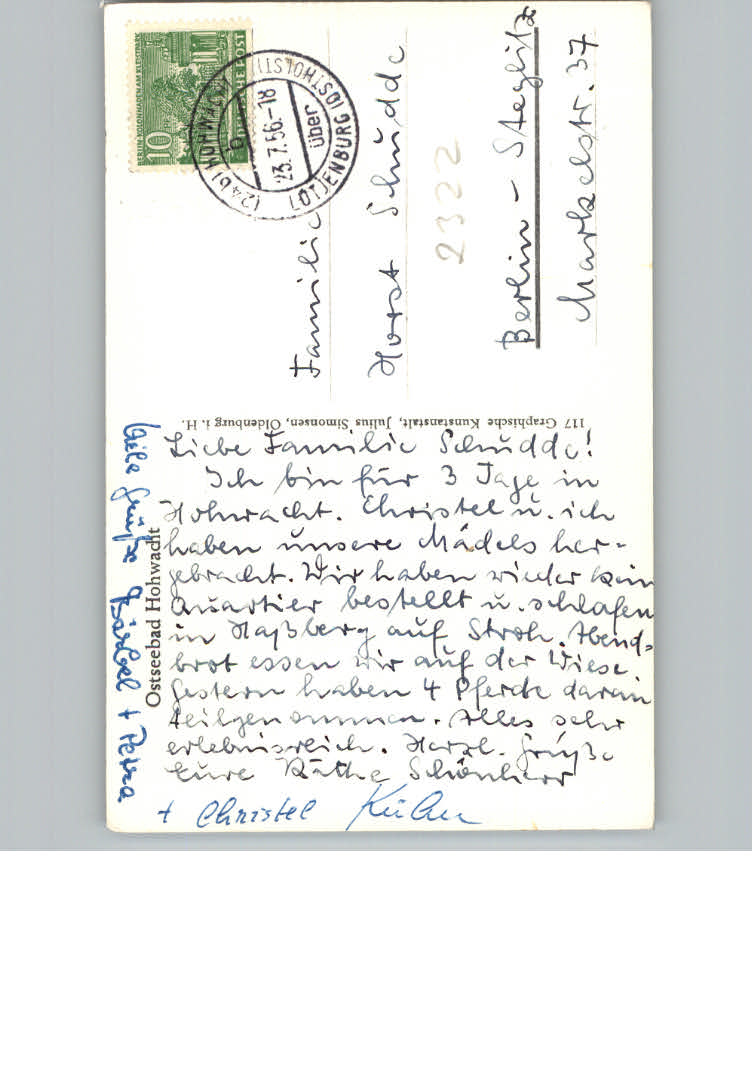 Liebe Familie Schudde!
Ich bin für 3 Tage in
Hohwacht. Christel u. ich
haben unsere Mädels her-
gebracht. Wir haben wieder kein
Quartier bestellt u. schlafen
in Haßberg auf Stroh. Abend-
brot essen wir auf der Wiese.
Gestern haben 4 Pferde daran
teilgenommen. Alles sehr
erlebnisreich. Herzl. Grüße
Eure Käthe Schönherr
+ Christel
Viele Grüße Bärbel + Petra
Ostseebad Hohwacht
117 Graphische Kunstanstalt, Julius Simonsen, Oldenburg i. H.
Familie
Horst Schudde
2322
Berlin - Steglitz
Markelstr. 37
10
(24b) HOHWACHT (OSTHOLST)
b
23.7.56.-18
über
LÜTJENBURG